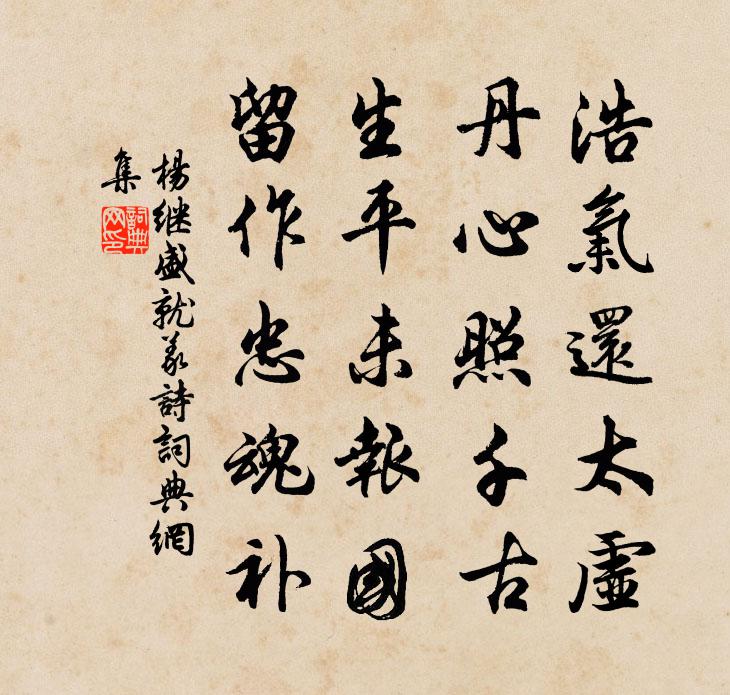 浩氣還太虛
丹心照千古
生平未報國
留作忠魂补
楊继盛就义詩詞典網
集
詞典網印